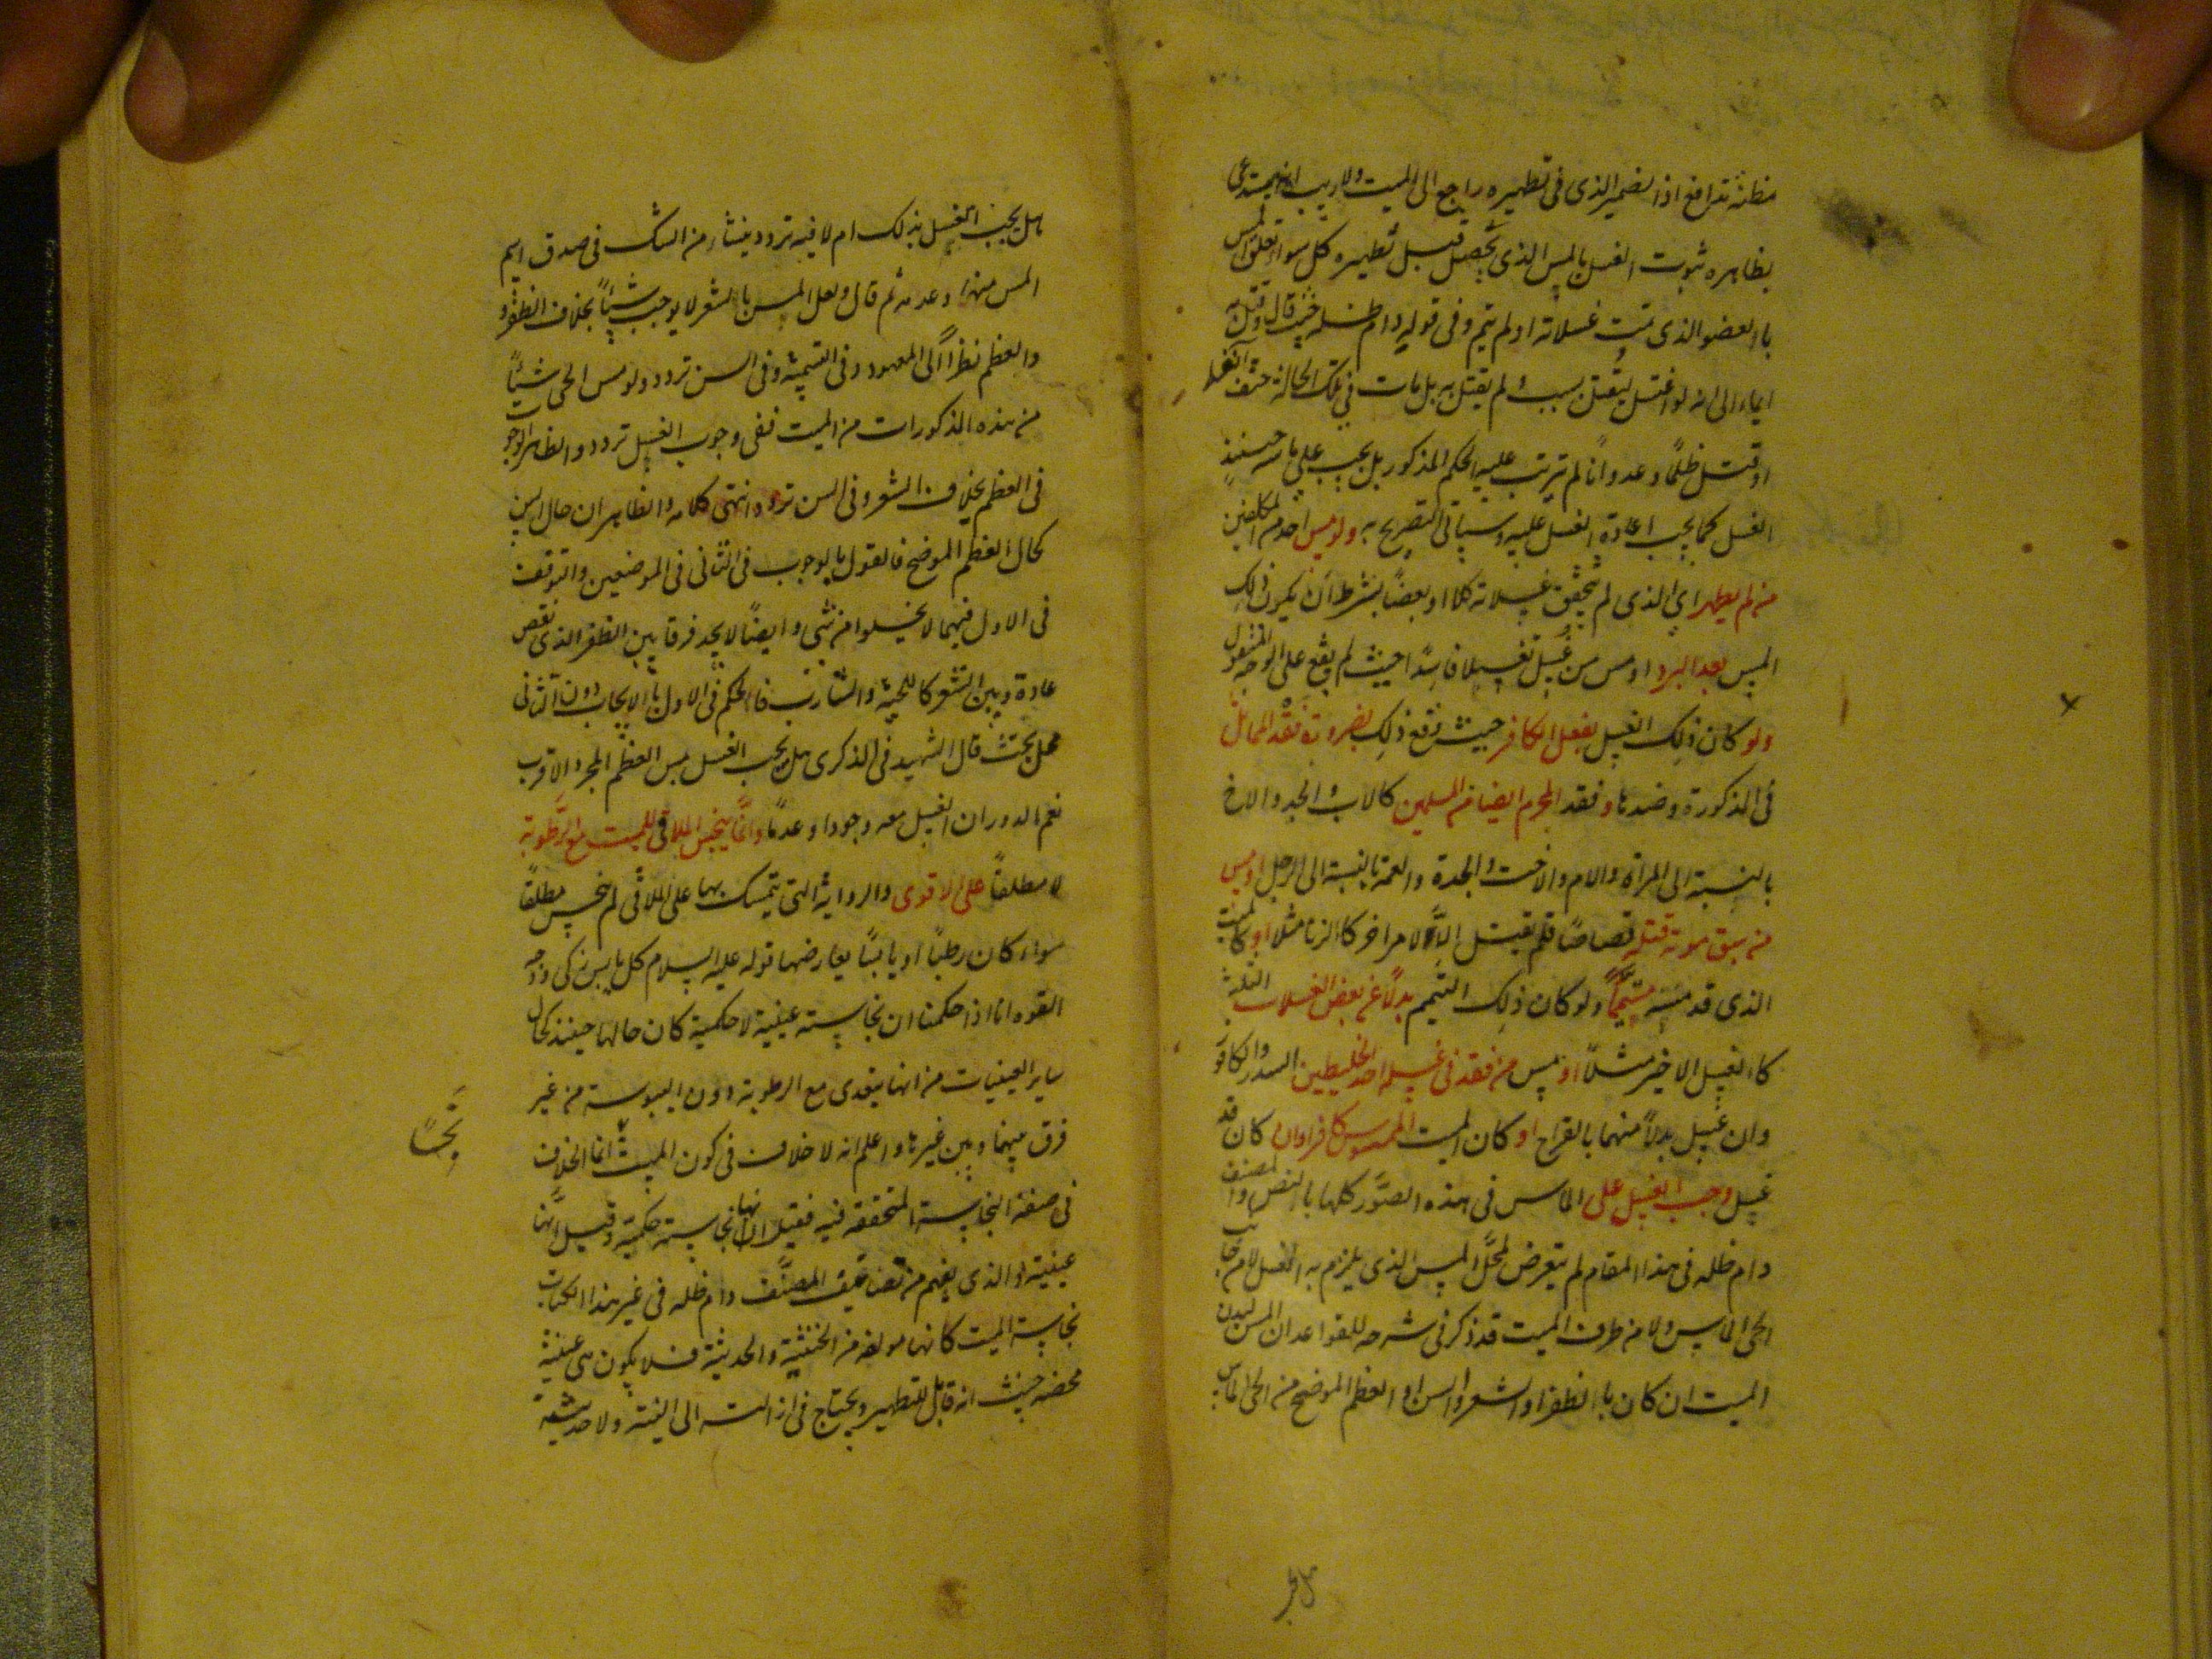 مظنة تدافع اذا الضمير الذى فى تطهيره راجع الى الميت ولا ريب انه يستدعى
بظاهره ثبوت الغسل بالمس الذى يحصل قبل تطهيره كل سواء تعلق المس
بالعضو الذى تمت غسلاته او لم يتم وفى قوله دام ظله حيث قال وقتل به
ايماء الى انه لو اغتسل ليقتل بسبب ولم يقتل به بل مات فى تلك الحالة حتف انفه
او قتل ظلمًا وعدوانًا لم يترتب عليه الحكم المذكور بل يجب على ماسه حينئذ
الغسل كما يجب اعادة الغسل عليه وسياتى التصريح به ولو مس احد من المكلفين
من لم يطهر اى الذى لم يتحقق غسلاته كلا او بعضًا بشرط ان يكون ذلك
المس بعد البرد او مس من غسل تغسيلا فاسدًا حيث لم يقع على الوجه المنقول
ولو كان ذلك الغسل بفعل الكافر حيث وقع ذلك بضرورة فقد المماثل
فى المذكورة وضدها وفقد المحرم ايضا من المسلمين كالاب والجد والاخ
بالنسبة الى المراة والام والاخت والجدة والعمة بالنسبة الى الرجل او مس
من سبق موته قتله قصاصًا فلم يقتل الا لامر اخر كالزنا مثلا او كان الميت
الذى قد مسه متيممًا ولو كان ذلك التيمم بدلًا عن بعض الغسلات الثلثة
كالغسل الاخير مثلًا او مس من فقد فى غسله احد الخليطين السدر والكافور
وان غسل بدلًا منهما بالقراح او كان الميت الممسوس كافرا وان كان قد
غسل وجب الغسل على الماس فى هذه الصور كلها بالنص والمصنف
دام ظله فى هذا المقام لم يتعرض لمحل المس الذى يلزم به الغسل لا من جانب
الحى الماس ولا من طرف الميت قد ذكر فى شرحه للقواعد ان المس لبدن
الميت ان كان بالظفر او الشعر او السن او العظم الموضح من الحى الماس
هل يجب الغسل بذلك ام لا فيه تردد ينشاء من الشك فى صدق اسم
المس منها وعدمه ثم قال ولعل المس بالشعر لا يوجب شيئًا بخلاف الظفر و
والعظم نظرًا الى المعهود وفى التسمية وفى السن تردد ولو مس الحى شيئًا
من هذه المذكورات من الميت ففى وجوب الغسل تردد والظاهر الوجوب
فى العظم بخلاف الشعر وفى السن تردد انتهى كلامه والظاهر ان حال السن
كحال العظم الموضح فالقول بالوجوب فى الثانى فى الموضعين والتوقف
فى الاول فيهما لا يخلوا من شى وايضًا لا يجد فرقا بين الظفر الذى نقص
عادة وبين الشعر كاللحية والشارب فالحكم فى الاول بالايجاب دون الثانى
محل بحث قال الشهيد فى الذكرى هل يجب الغسل بمس العظم المجرد الاقرب
نعم لدوران الغسل معه وجودا وعدمًا وانما ينجس الملاقى للميت مع الرطوبة
لا مطلقًا على الاقوى والرواية التى يتمسك بها على الملاقى لم نجس مطلقًا
سواء كان رطبًا او يابسًا يعارضها قوله عليه السلام كل يابس زكى ووجه
القوه انا اذا حكمنا ان نجاسته عينية لا حكمية كان حالها حينئذ كحال
ساير العينيات من انها يتعدى مع الرطوبة دون اليبوسة من غير
فرق بينها وبين غيرها واعلم انه لا خلاف فى كون الميت انما الخلاف
نجسًا
فى صفة النجاسة المتحققة فيه فقيل انها نجاسة حكمية وقيل انها
عينية والذى يفهم من تضاعيف المصنف دام ظله فى غير هذا الكتاب
نجاسة الميت كانها مولفه من الخبثية والحدثية فلا يكون هى عينية
محضه حيث انه قابل للتطهير ويحتاج فى ازالته الى النية ولا حدثية